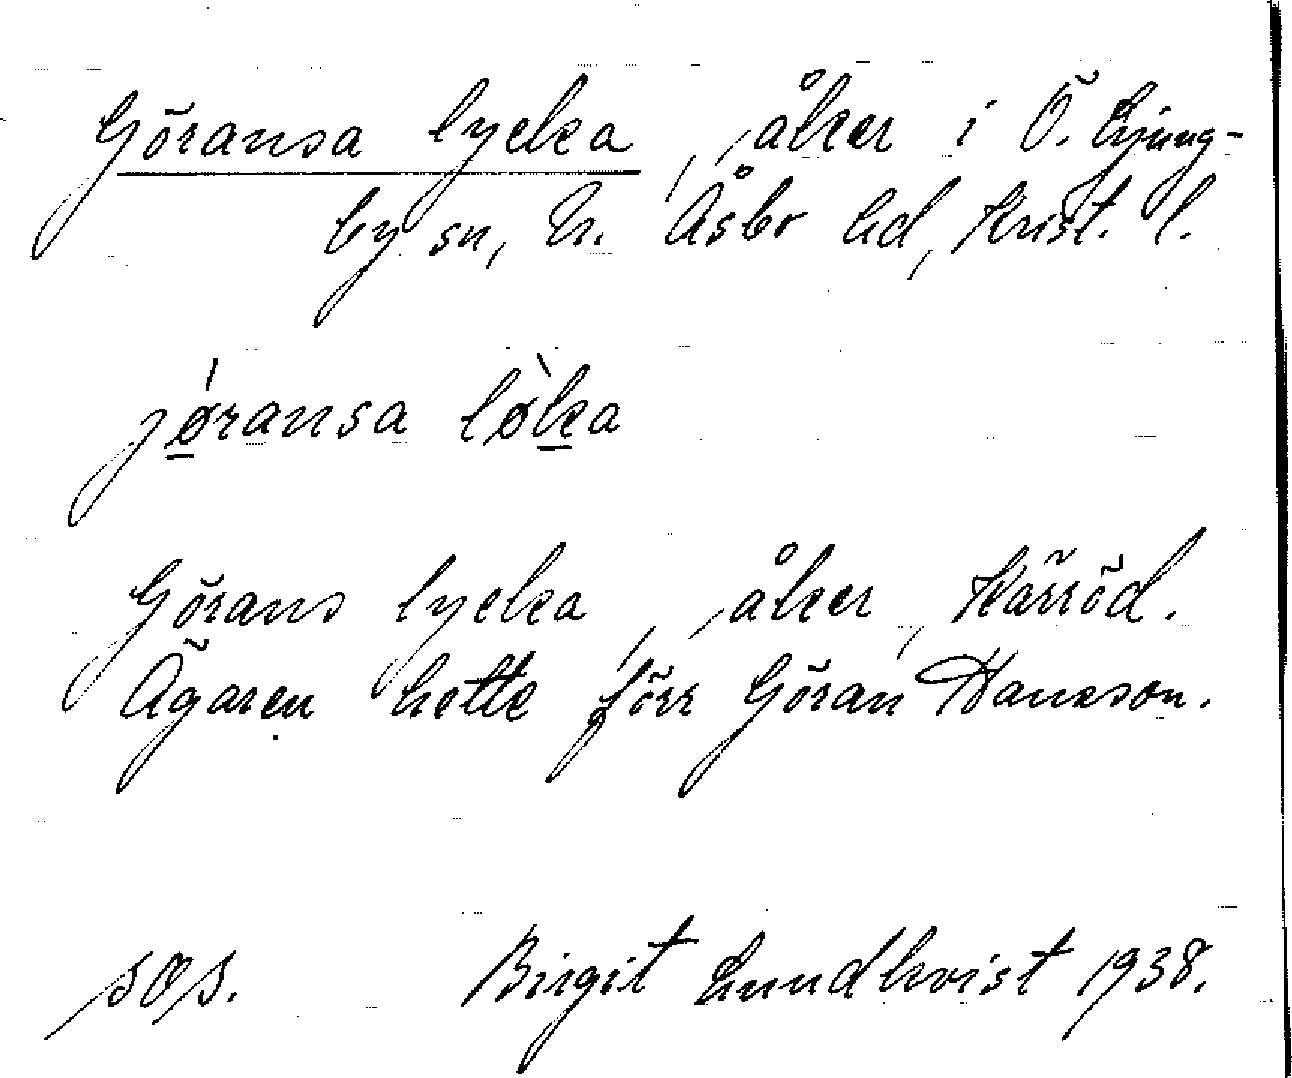 Göransa lycka, åker i Ö. Ljung-
by sn, N. Åsbo hd, Krist. l.
jøransa løka
Görans lycka, åker, Kärröd.
Ägaren hette förr Göran Hansson.
Birgit Lundkvist 1938.